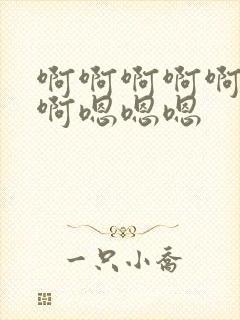 啊啊啊啊啊
啊嗯嗯嗯
一只小乔